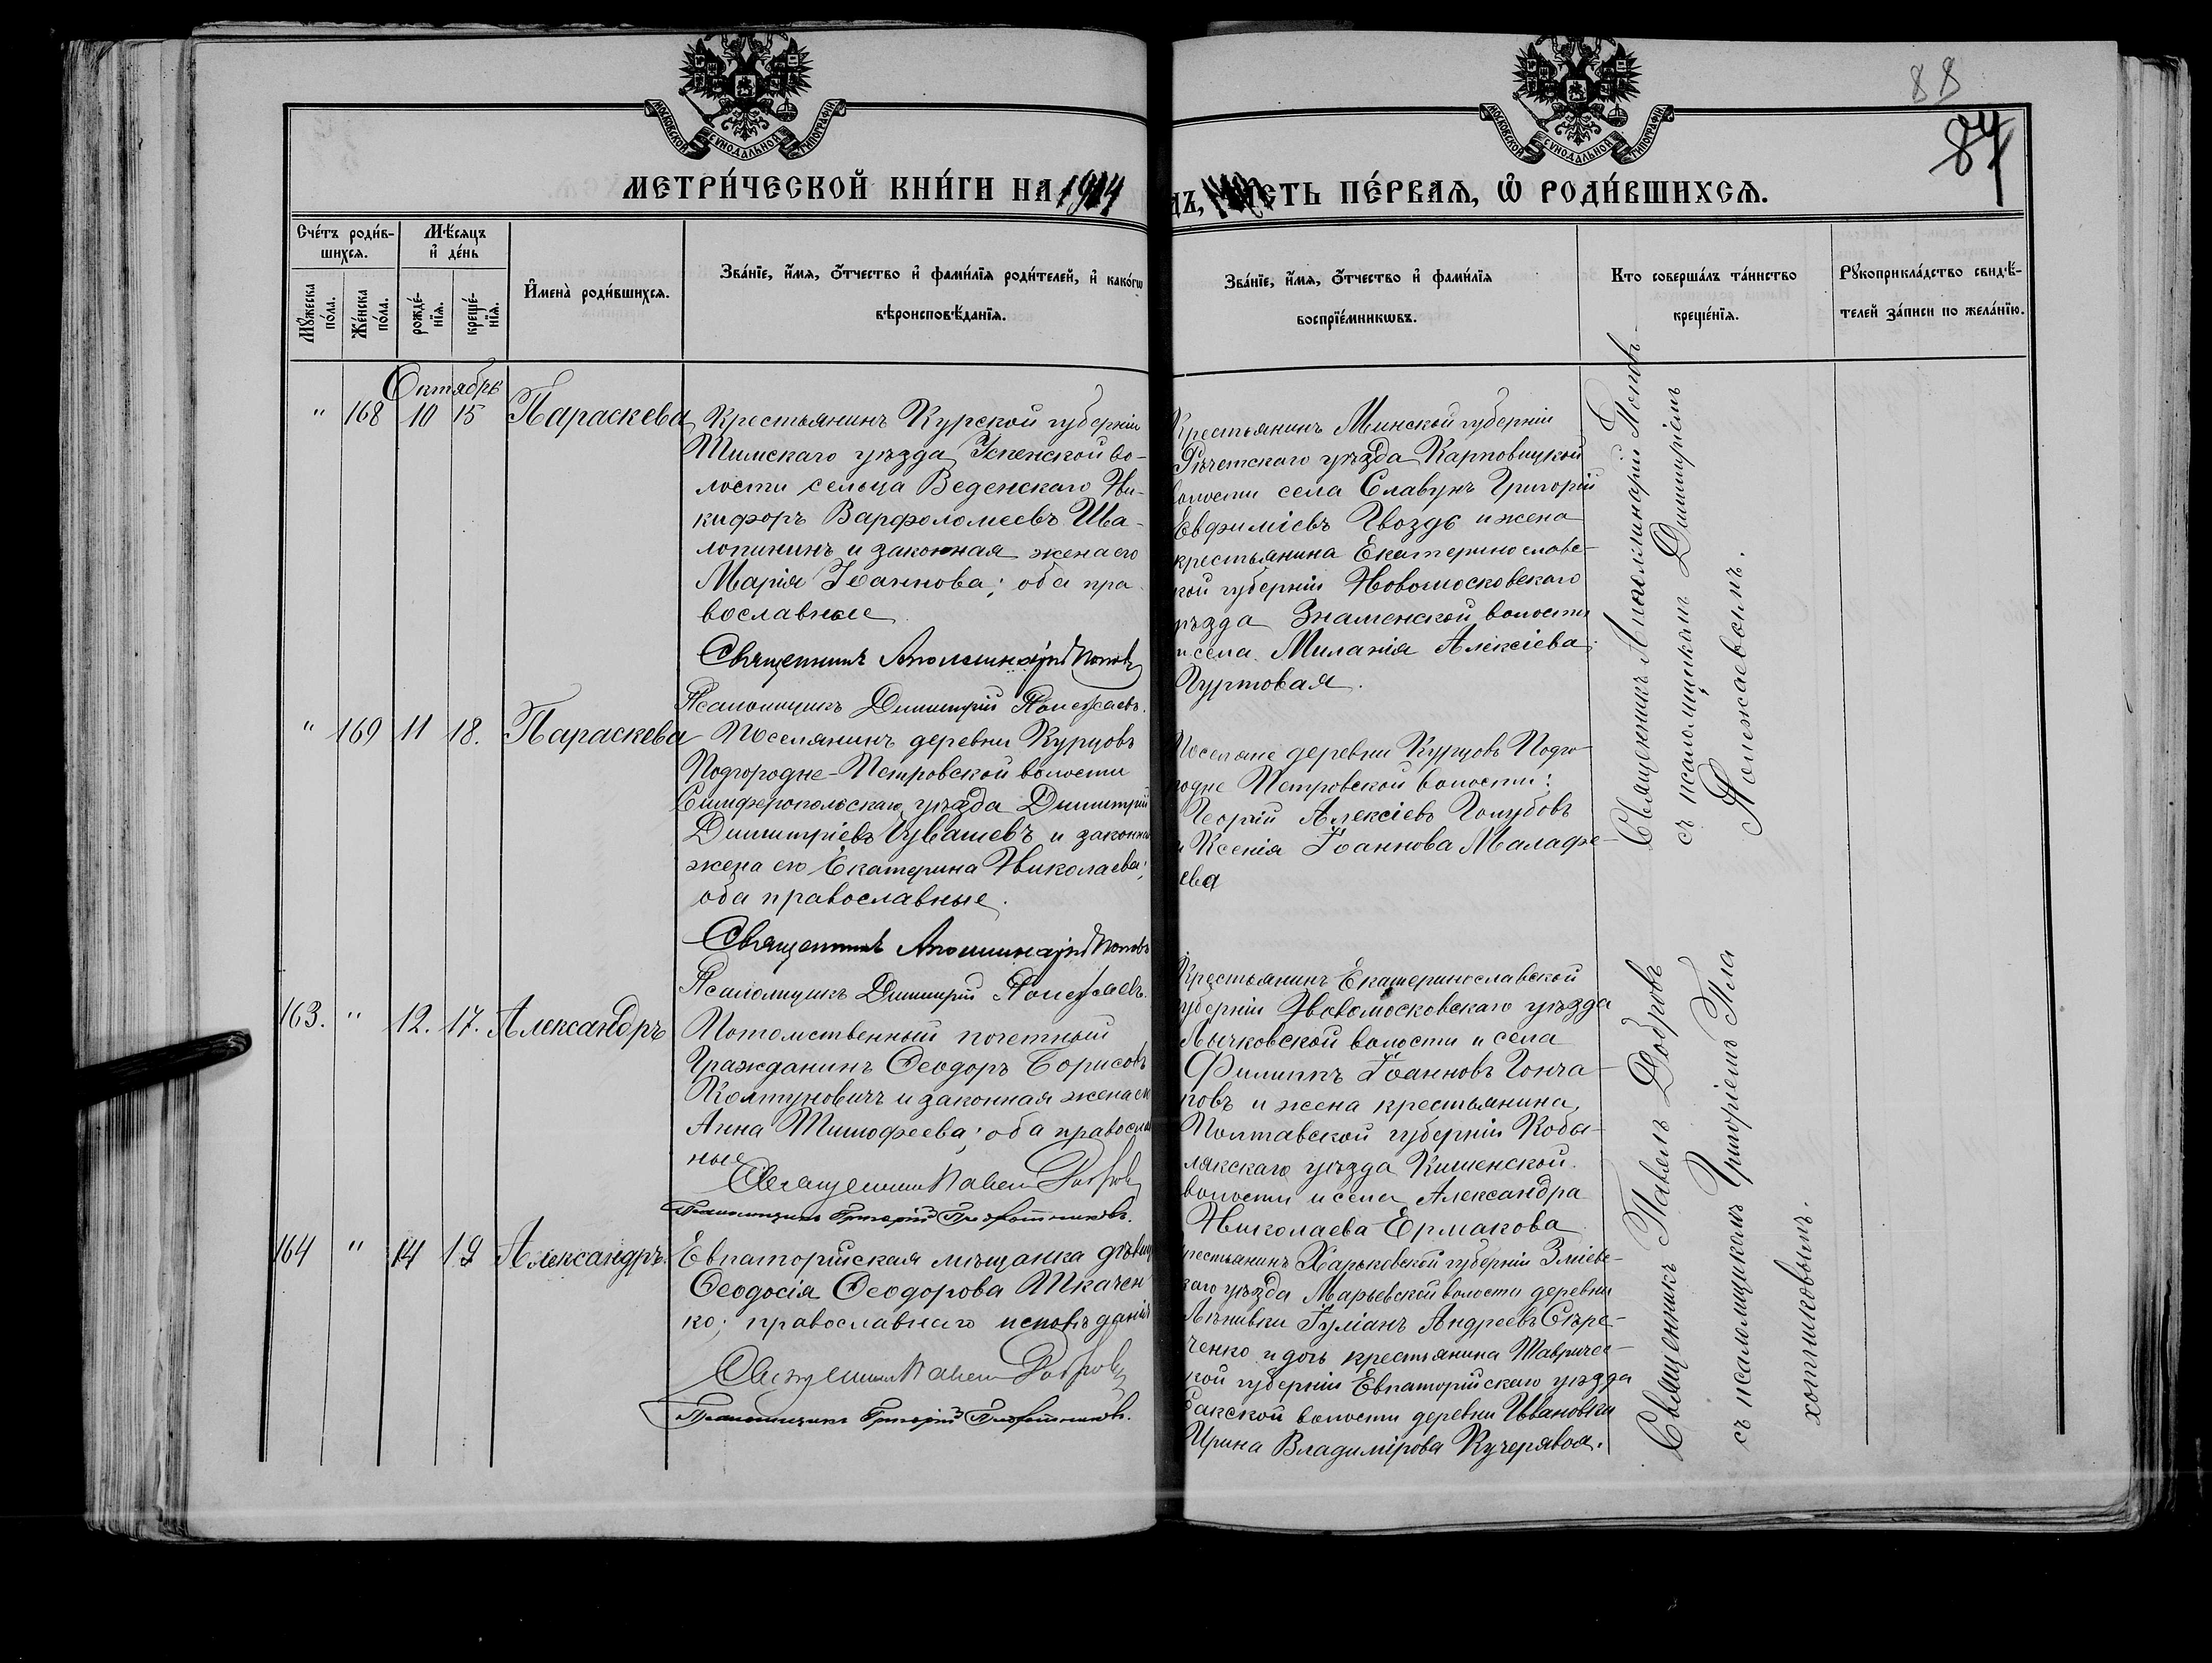 88
87
МОСКОВСКОЙ СѴНОДАЛЬНОЙ ТИПОГРАФІИ
МОСКОВСКОЙ СѴНОДАЛЬНОЙ ТИПОГРАФІИ
МЕТРИ́ЧЕСКОЙ КНИ́ГИ НА 1914
ДЪ, СТЬ ПЕ́РВАѦ, Ѡ҆ РОДИ́ВШИХСѦ.
Сче́тъ роди́в-
шихсѧ.
Мꙋжеска по́ла.
Же́нска по́ла.
Мѣсѧцъ
и҆ де́нь
рожде́-
нїѧ.
креще́-
нїѧ.
И҆мена̀ роди́вшихсѧ.
Зва́нїе, и҆́мѧ, ѻ҆́тчество и҆ фами́лїѧ роди́телей, и҆ како́гѡ
вѣроисповѣ́данїѧ.
Зва́нїе, и҆́мѧ, ѻ҆́тчество и҆ фами́лїѧ
воспрїе́мникѡвъ.
Кто соверша́лъ та́инство
креще́нїѧ.
Рꙋкоприкла́дство свидѣ́-
телей за́писи по жела́нїю.
Октябрь
" 168 10 15 Параскева
Крестьянинъ Курской губерніи
Тимскаго уѣзда, Успенской во-
лости сельца Веденскаго Ни-
кифоръ Варфоломеевъ Ша-
лопининъ и законная жена его
Марія Іоаннова; оба пра-
вославные
Священникъ Аполлинарій Поповъ
Псаломщикъ Димитрій Полежаевъ.
Крестьянинъ Минской губерніи
Рѣчетскаго уѣзда Карповицкой
волости села Славунъ Григорій
Евфиміевъ Гвоздь и жена
крестьянина Екатеринославс-
кой губерніи Новомосковскаго
уѣзда Знаменской волости
и села Миланія Алексіева
Гуртовая.
Священникъ Аполлинарій Поповъ
съ псаломщикомъ Димитріемъ
Полежаевымъ.
" 169 11 18. Параскева
Поселянинъ деревни Курцовъ
Подгородне-Петровской волости
Симферопольскаго уѣзда Димитрій
Димитріевъ Чувашевъ и законная
жена его Екатерина Николаева;
оба православные.
Священникъ Аполлинарій Поповъ
Псаломщикъ Димитрій Полежаевъ.
Поселяне деревни Курцовъ Подго-
родне Петровской волости:
Георгій Алексіевъ Голубовъ
и Ксенія Іоаннова Малафе-
ева
163. " 12. 17. Александръ
Потомственный почетный
Гражданинъ Ѳеодоръ Борисовъ
Колтуновичъ и законная жена его
Анна Тимофеева; оба правосла
ные
Священникъ Павелъ Добровъ
Псаломщикъ Григорій Плохотниковъ.
Крестьянинъ Екатеринославской
губерніи Новомосковскаго уѣзда
Лычковской волости и села
Филиппъ Іоанновъ Гонча-
ровъ и жена крестьянина
Полтавской губерніи Кобы-
лякскаго уѣзда Кишенской
волости и села Александра
Николаева Ермакова
Священникъ Павелъ Добровъ
съ псаломщикомъ Григоріемъ Пло
хотниковымъ.
164 " 14 19 Александръ.
Евпаторійская мѣщанка дѣвица
Ѳеодосія Ѳеодорова Ткачен
ко; православнаго исповѣданія
Священникъ Павелъ Добровъ
Псаломщикъ Григорій Плохотниковъ.
Крестьянинъ Харьковской губерніи Зміевс-
каго уѣзда Марьевской волости деревни
Іуліанъ Андреевъ Сѣре-
ченко и дочь крестьянина Тавричес-
кой губерніи Евпаторійскаго уѣзда
волости деревни Ивановки
Ирина Владимірова Кучерявая.